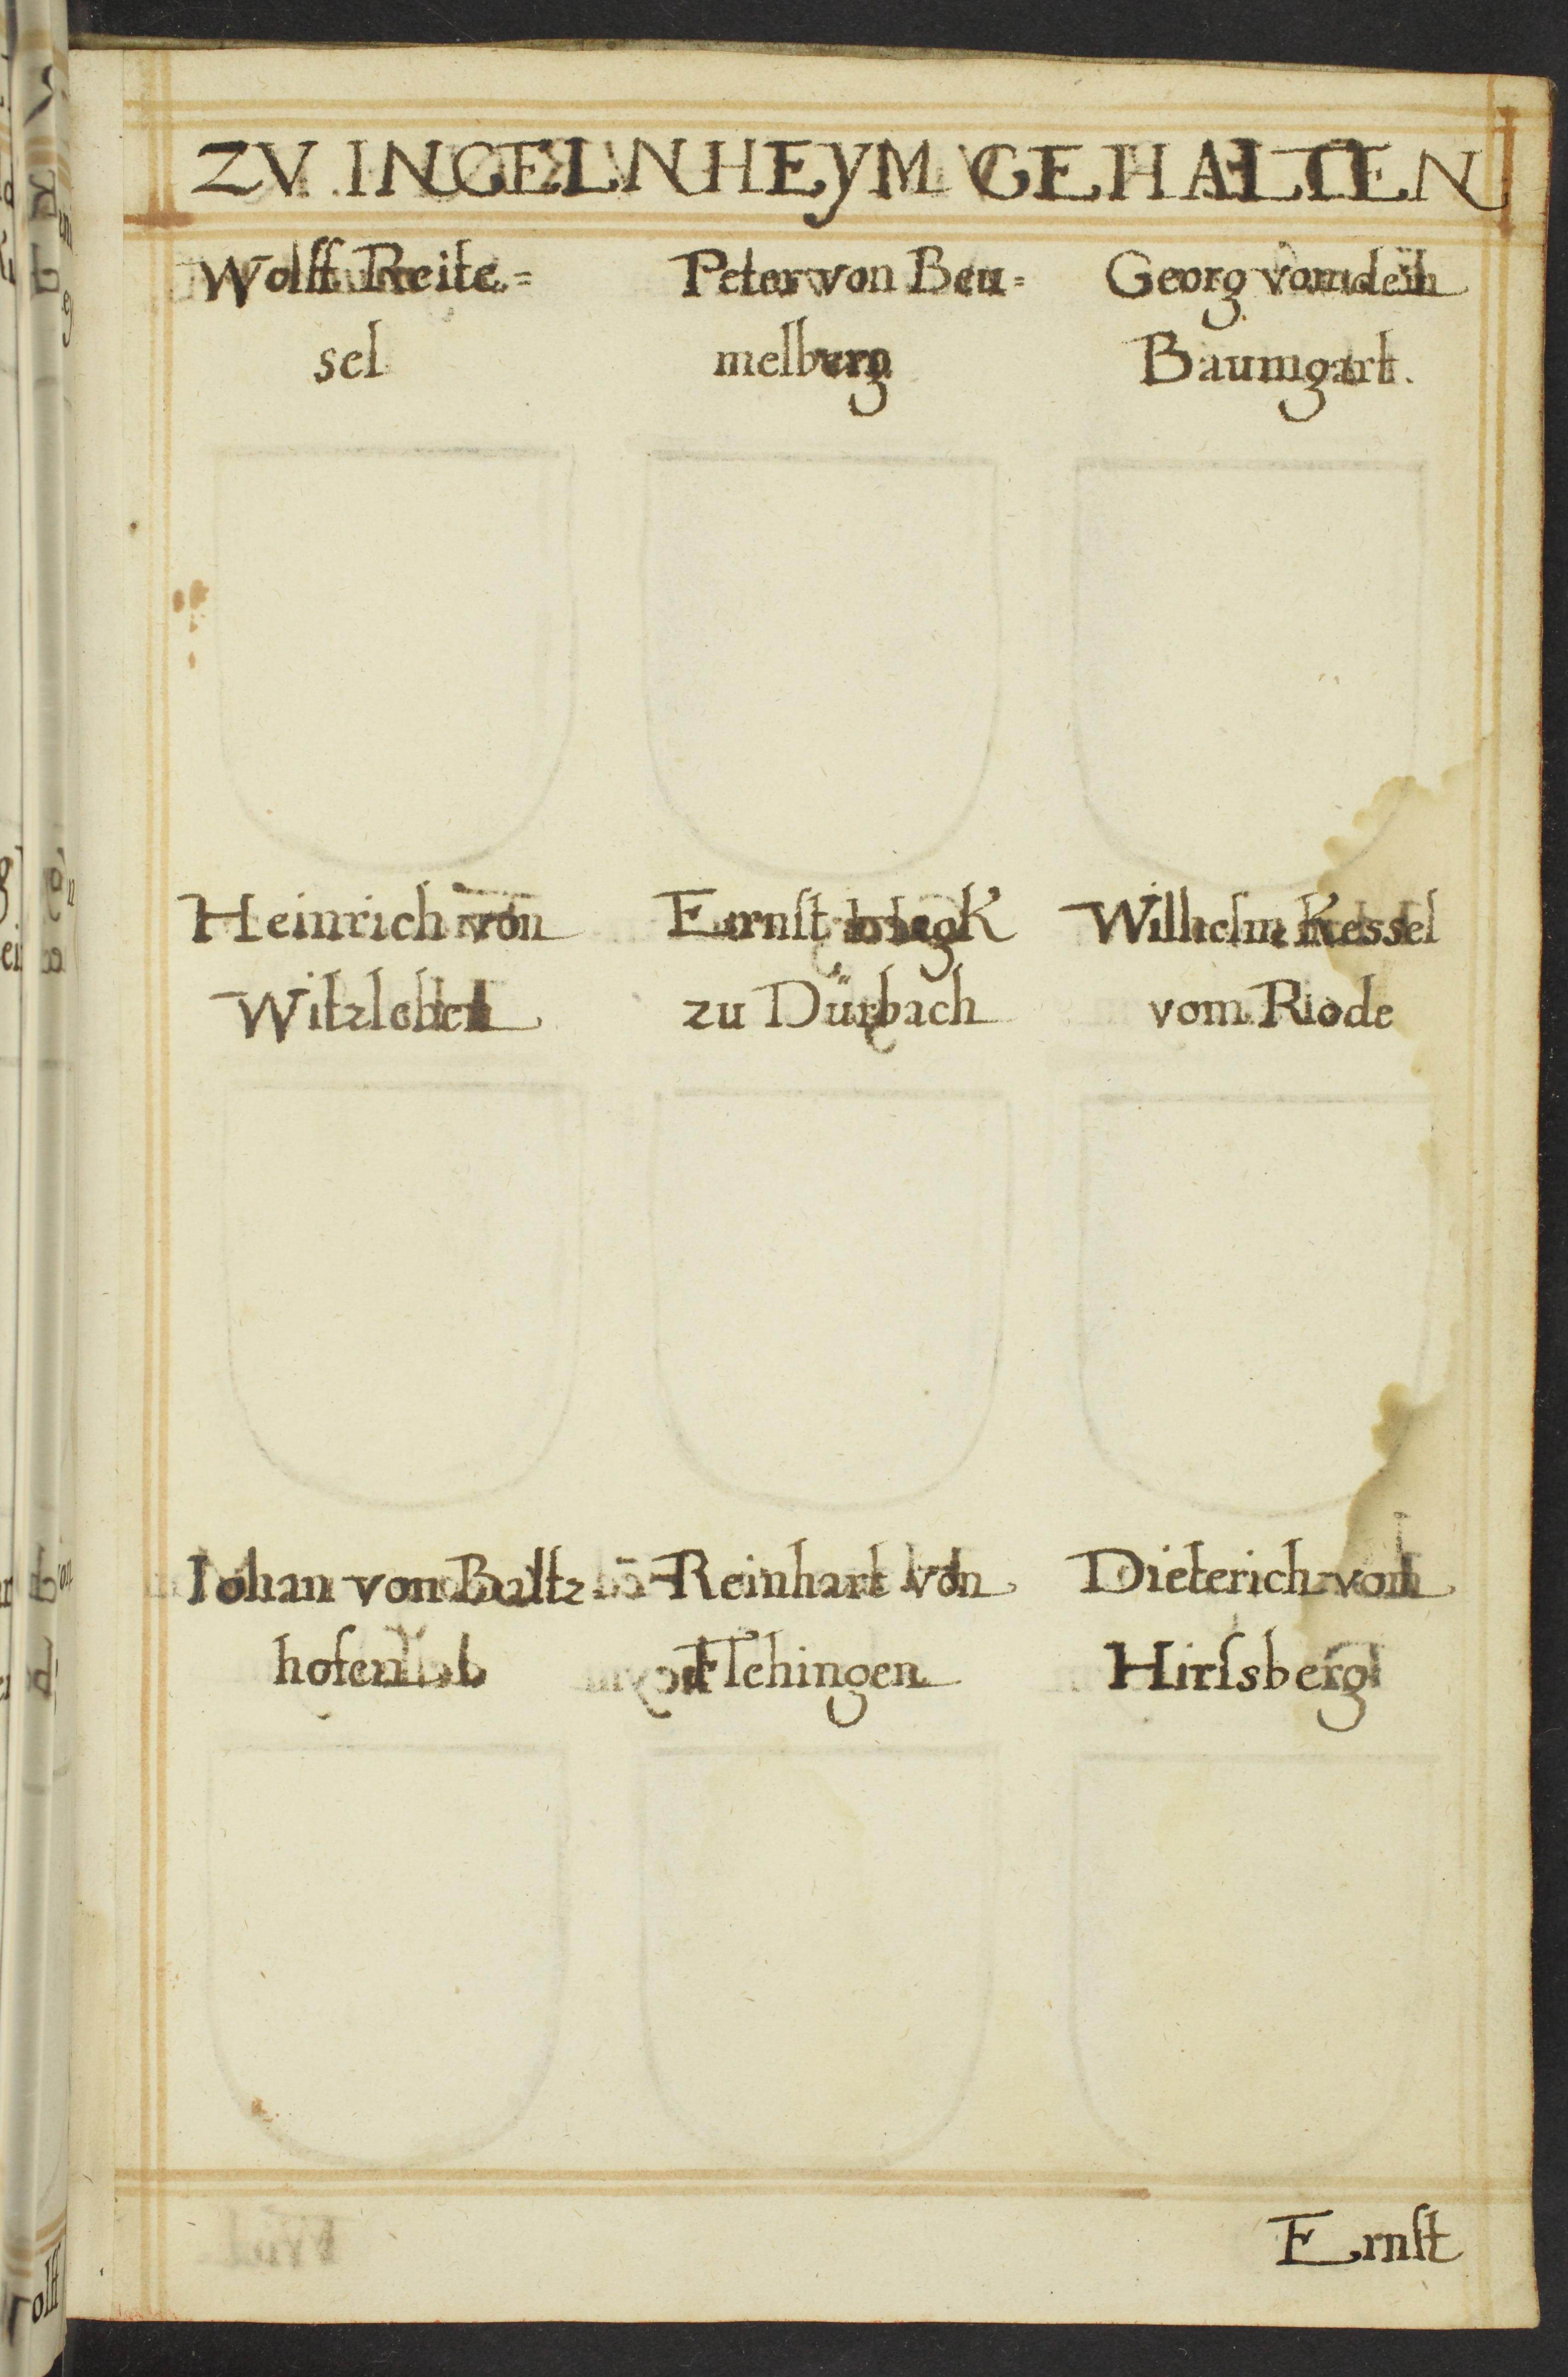 ZV INGELNHEYM GEHALTEN
Wolff Reite=
sel
Peter von Beu=
melberg
Georg von dem
Baumgart.
Heinrich von
Witzleben
Ernst
zu Dürbach
Wilhelm Kessel
vom Rode
Johan von Baltz
hofen
Reinhart von
Flehingen
Dieterich von
Hirſsberg
Ernſt